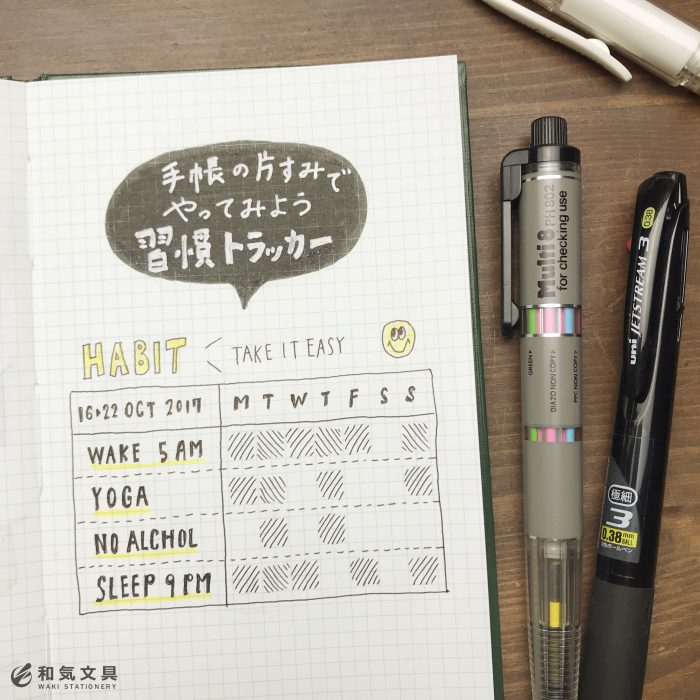 手帳の片すみで
やってみよう
習慣トラッカー
HABIT < TAKE IT EASY
16▸22 OCT 2017 M T W T F S S
WAKE 5 AM
YOGA
NO ALCHOL
SLEEP 9 PM
Multi 8 PH 802
for checking use
GREEN▸
DIAZO NON COPY▸
PPC NON COPY▸
uni JETSTREAM 3 0.38
極細
3
0.38mm
BALL
和気文具
WAKI STATIONERY